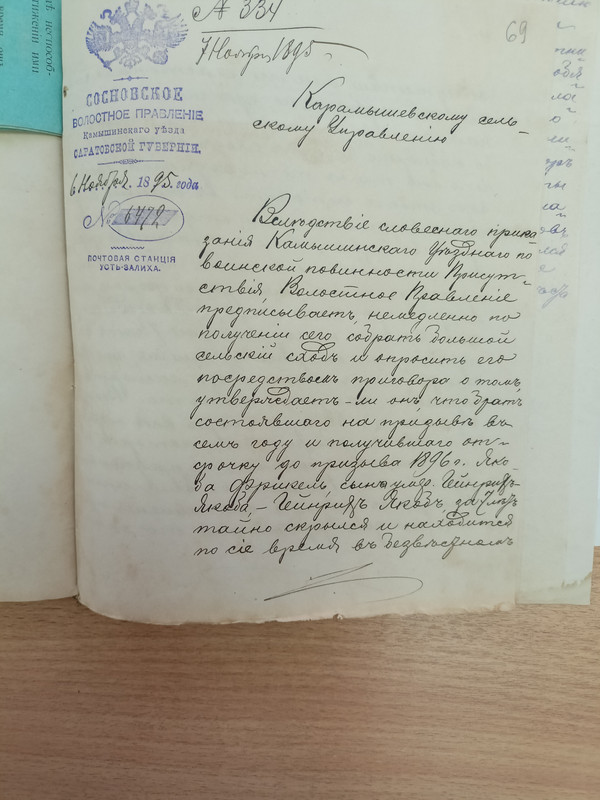 № 334
7 Ноября 1895
69
СОСНОВСКОЕ
ВОЛОСТНОЕ ПРАВЛЕНІЕ
Камышинскаго уѣзда
САРАТОВСКОЙ ГУБЕРНІИ.
6 Ноября 1895 года
№ 6472
ПОЧТОВАЯ СТАНЦІЯ
УСТЬ-ЗАЛИХА.
Карамышевскому сель-
скому Управленію
Вслѣдствіе словеснаго прика
занія Камышинскаго Уѣзднаго по
воинской повинности Присут-
ствія Волостное Правленіе
предписываетъ, немедленно по
полученіи сего, собрать большой
сельскій сходъ и опросить его
посредствомъ приговора о томъ,
утверждаетъ-ли онъ, что братъ
состоявшаго на призывѣ въ
семъ году и получившаго от-
срочку до призыва 1896 г. Яко-
ба сынъ Гейнрихъ
Якоба, - Гейнрихъ Якобъ, за
тайно скрылся и находится
по сіе время въ безвѣстномъ